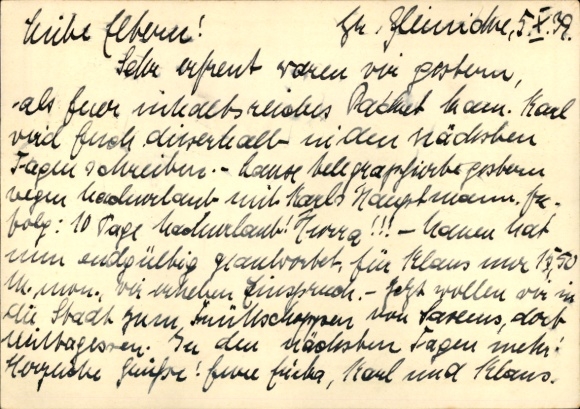 Liebe Eltern! Gr. 5.X.39.
Sehr erfreut waren wir gestern,
als Euer inhaltsreiches Packet kam. Karl
wird Euch dieserhalb in den nächsten
Tagen schreiben. - telegraphierte gestern
wegen Nachurlaub mit Karls Hauptmann. Er-
folg: 10 Tage Nachurlaub! Hurra!!! - hat
nun endgültig geantwortet, für Klaus nur
M. mon., wir erheben Einspruch. - Jetzt wollen wir in
die Stadt zum Frühschoppen von dort
Mittagessen. In den nächsten Tagen mehr!
Herzliche Grüsse! Eure Karl und Klaus.